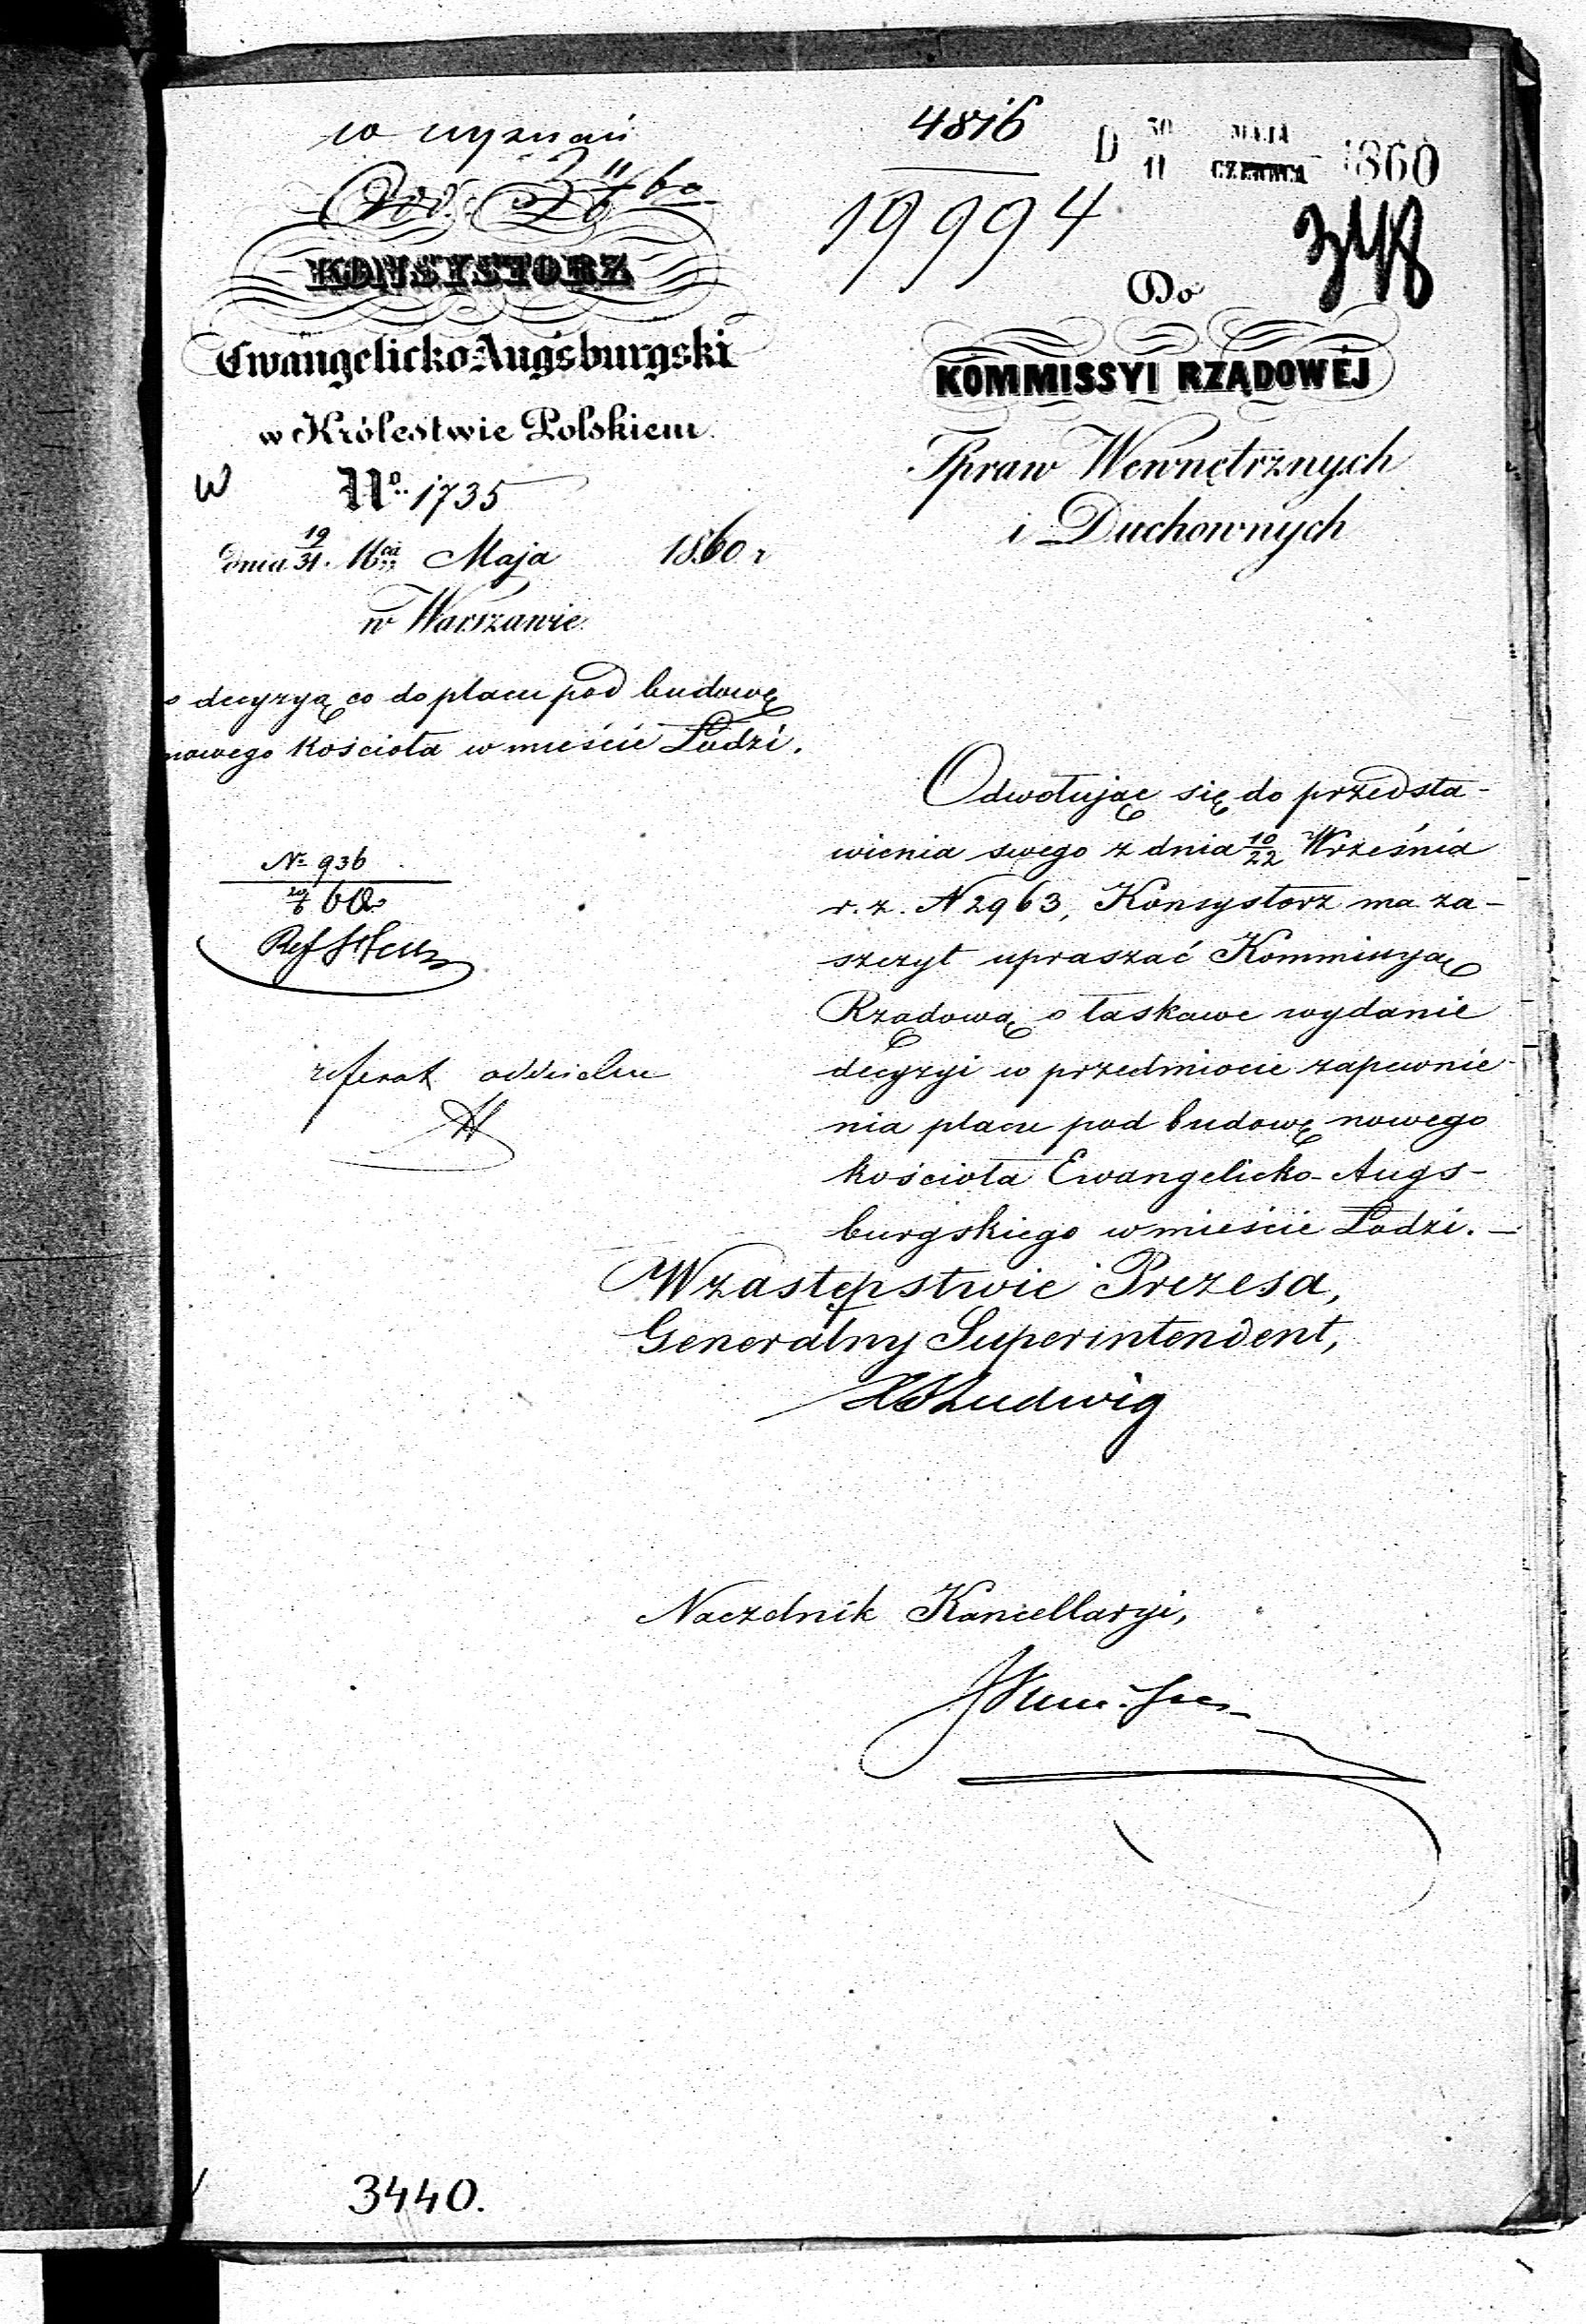 w wyznań
KONSYSTORZ
Ewangelicko-Augsburgski
w Królestwie Polskiem.
W
No. 1735
dnia 19/31. Mca Maja 1860 r
w Warszawie.
o decyzyą co do placu pod budowę
nowego Kościoła w mieście Łodzi.
No 936
60
Ref
referat oddzielny
4816
19994
D 30 MAJA
11 CZERWCA 1860
348
Do
KOMMISSYI RZĄDOWÉJ
Spraw Wewnętrznych
i Duchownych
Odwołując się do przedsta-
wienia swego z dnia 10/22 Września
r. z. N 2963, Konsystorz ma za-
szczyt upraszać Kommissyą
Rządową o łaskawe wydanie
decyzyi w przedmiocie zapewnie-
nia placu pod budowę nowego
kościoła Ewangelicko-Augs-
burgskiego w mieście Łodzi. —
W zastępstwie Prezesa,
Generalny Superintendent,
Ludwig
Naczelnik Kancellaryi,
3440.